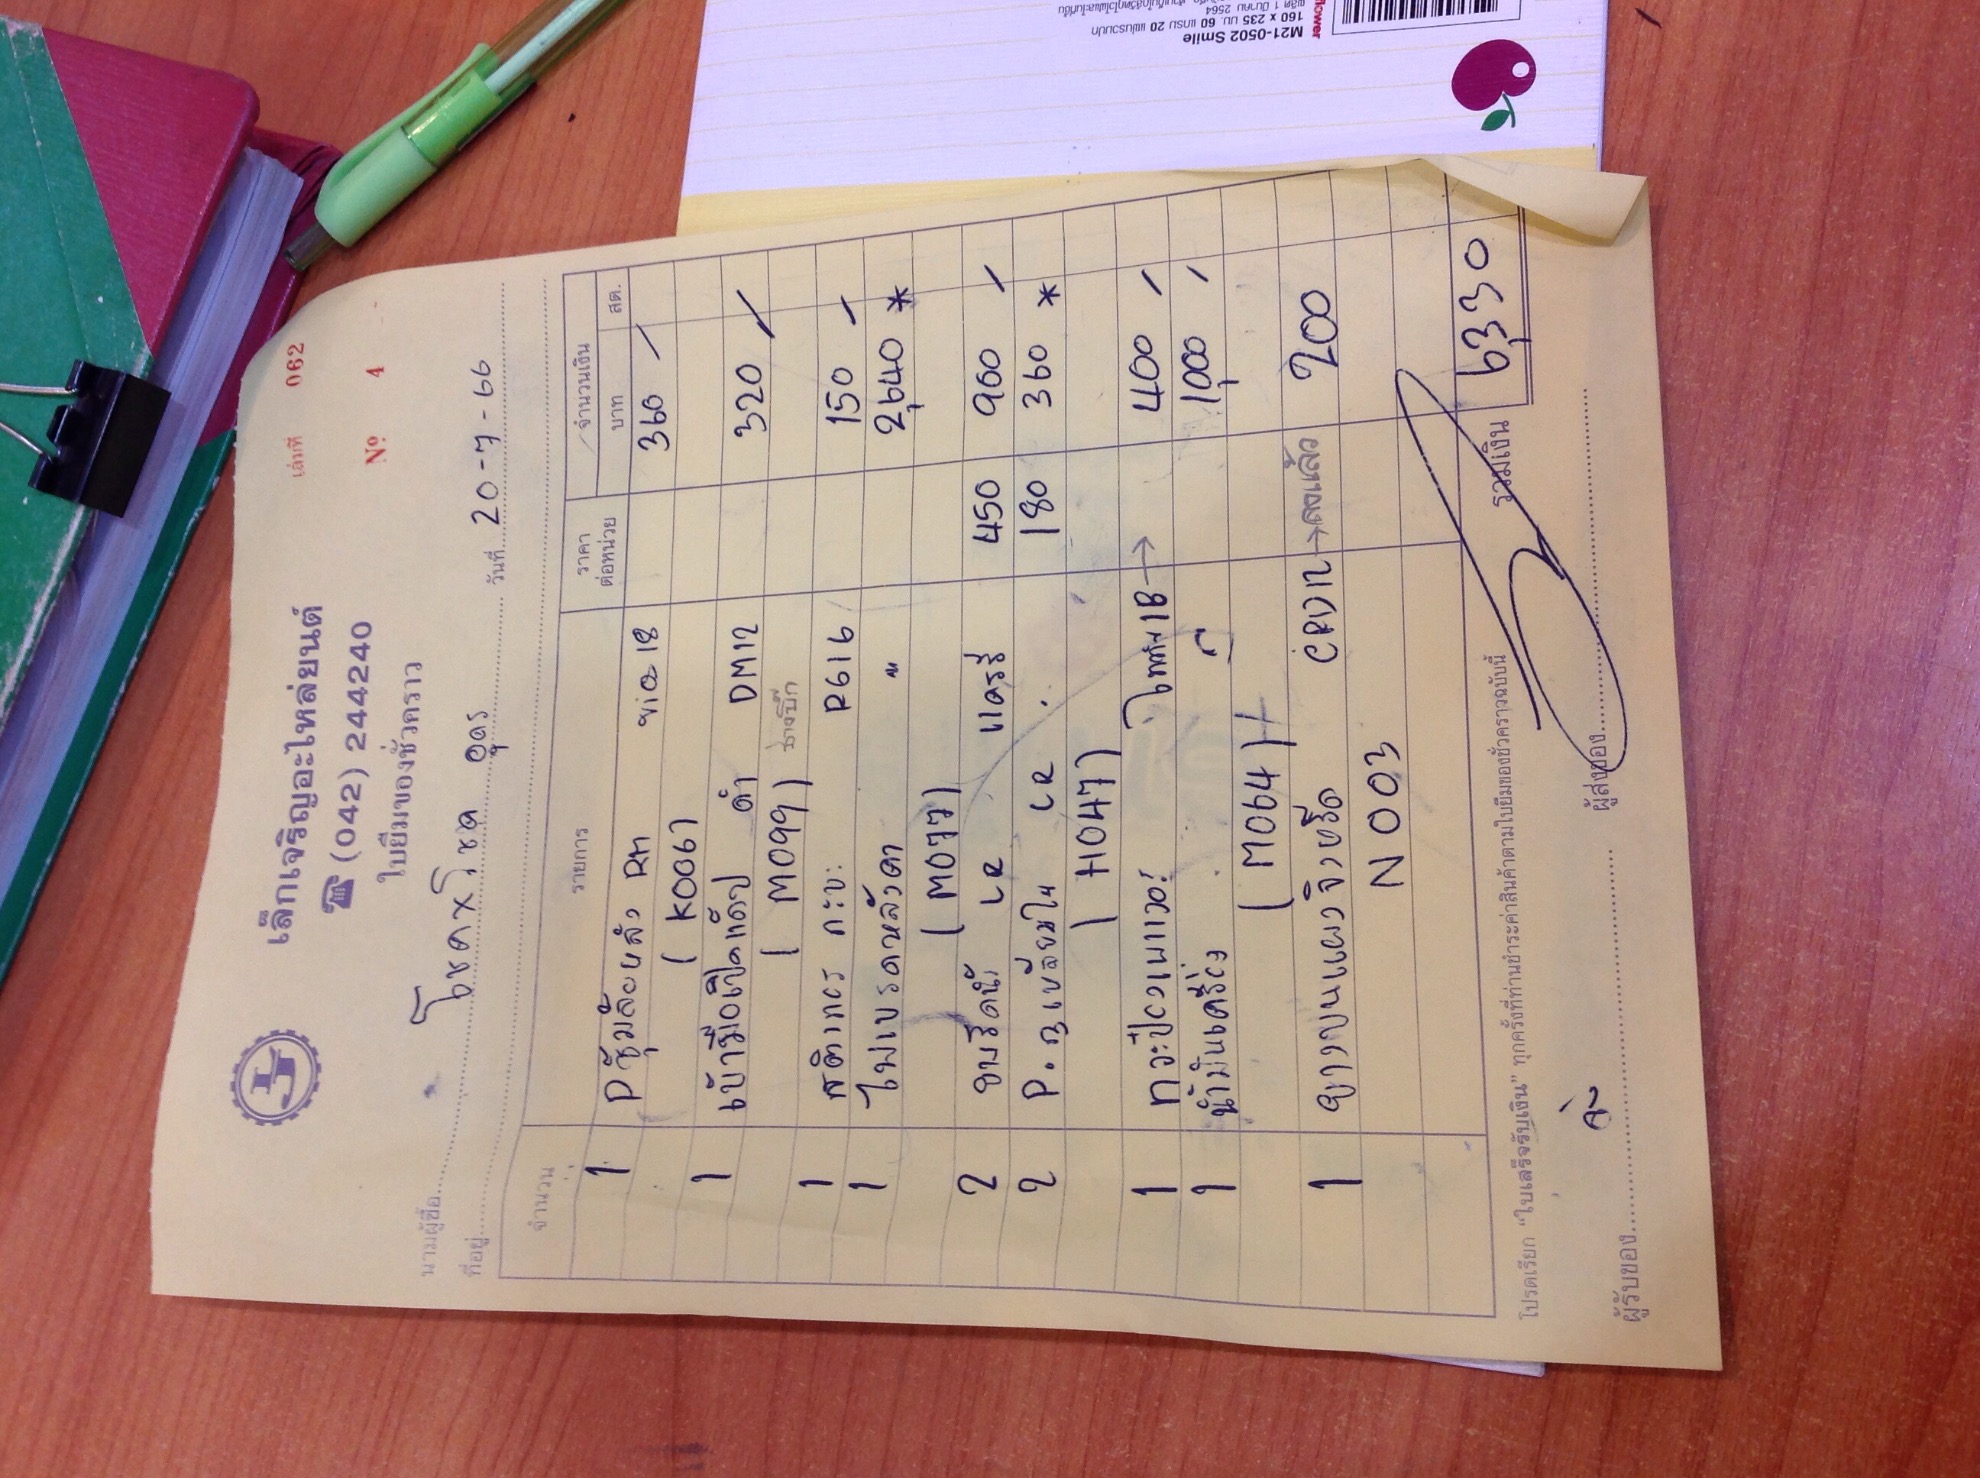 เล็กเจริญอะไหล่ยนต์
☎ (042) 244240
ใบยืมของชั่วคราว
เล่มที่ 062
№ 4
นามผู้ซื้อ โชคชโชค อุดร วันที่ 20-7-66
ที่อยู่
จำนวน รายการ ราคาต่อหน่วย จำนวนเงิน
บาท สต.
1 Pซุ้มล้อหลัง RH วีโก้ 18 360
(K0067)
1 เบ้ามือเปิดแค็ป ดำ DM12 320
(M099) ช่างบิ๊ก
1 สติกเกอร์ กะบะ R616 150
1 ไฟเบรคหลังคา " 2,640 *
(M077)
2 LR แครรี่ 450 900
2 P. LR 180 360 *
(H047)
1 เพาเวอร์ ไททัน 1B → 400
1 น้ำมันเครื่อง 1,000
(M064)
1 ยางบน CRV12 → ลงแล้ว 200
N003
รวมเงิน 6,330
โปรดเรียก "ใบเสร็จรับเงิน" ทุกครั้งที่ท่านชำระค่าสินค้าตามใบยืมของชั่วคราวฉบับนี้
ผู้รับของ ผู้ส่งของ
M21-0502 Smile
160 x 235 มม. 60 แกรม 20 แผ่น
flower